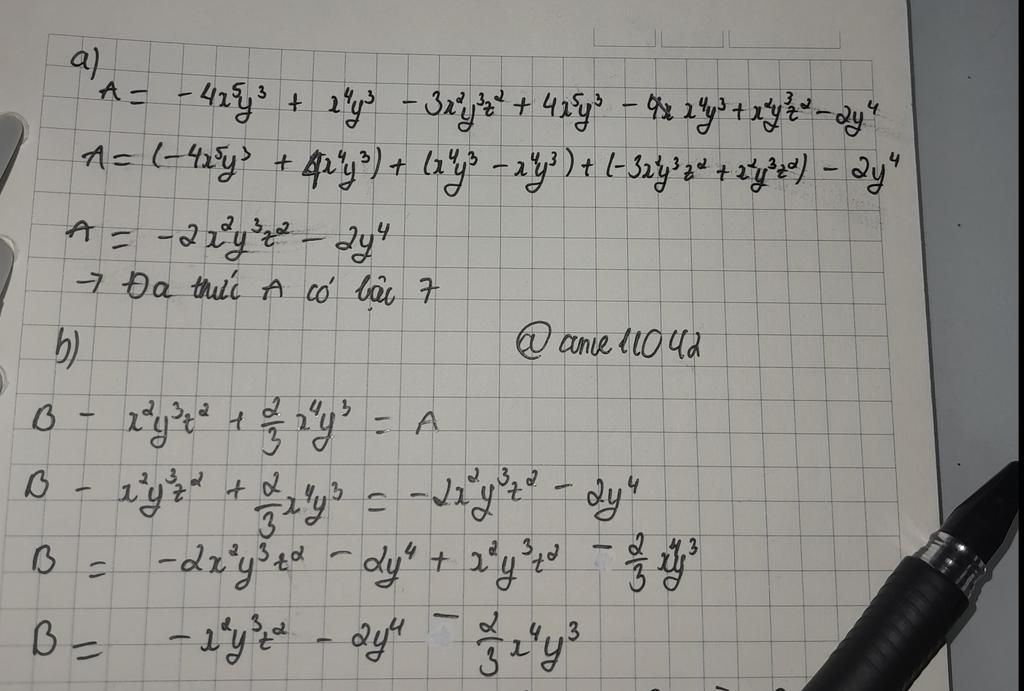 a)
A = -4x⁵y³ + x⁴y³ - 3x²y³z² + 4x⁵y³ - x⁴y³ + x²y³z² - 2y⁴
A = (-4x⁵y³ + 4x⁴y³) + (x⁴y³ - x⁴y³) + (-3x²y³z² + x²y³z²) - 2y⁴
A = -2x²y³z² - 2y⁴
→ Đa thức A có bậc 7
b)
@anie11042
B - x²y³z² + 2/3 x⁴y³ = A
B - x²y³z² + 2/3 x⁴y³ = -2x²y³z² - 2y⁴
B = -2x²y³z² - 2y⁴ + x²y³z² - 2/3 x⁴y³
B = -x²y³z² - 2y⁴ - 2/3 x⁴y³